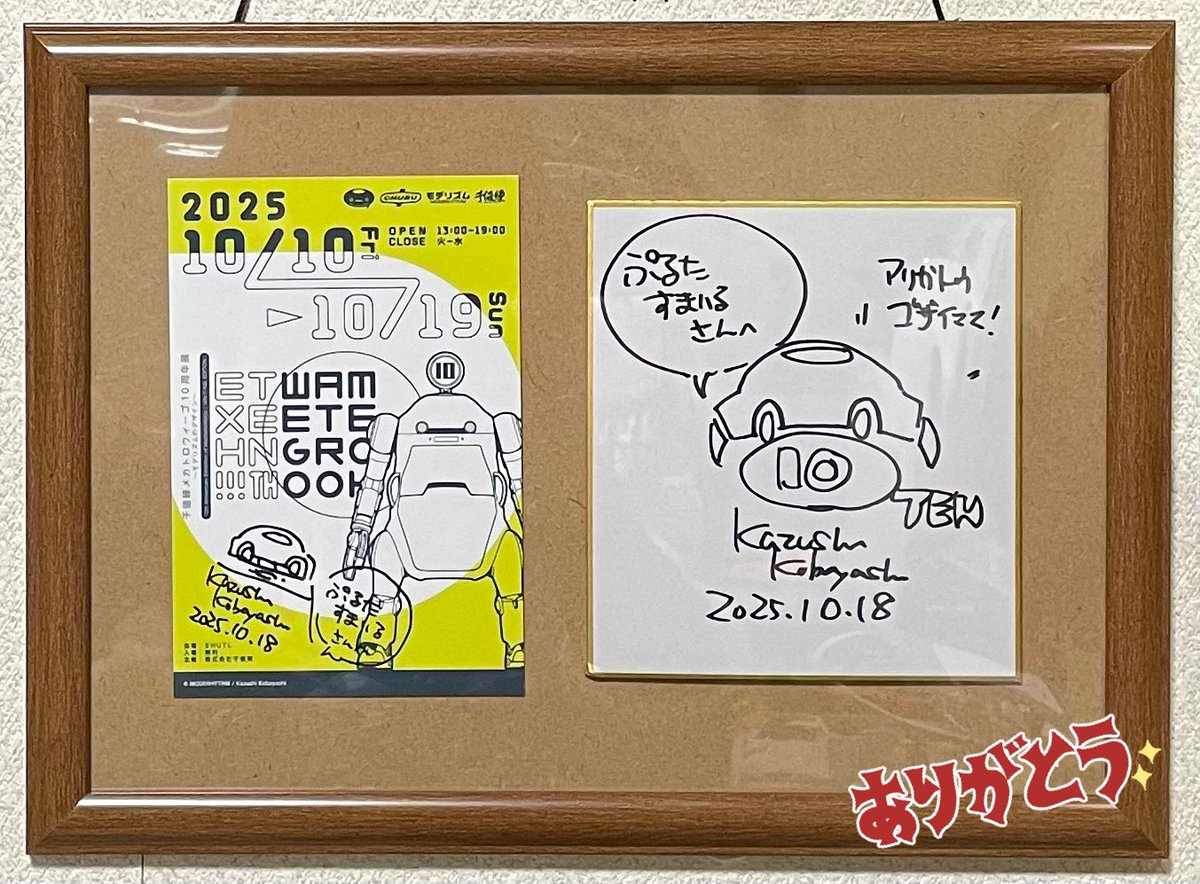 2025
モデリズム 千値練
10/10 Fri
OPEN 13:00-19:00
CLOSE 火-水
▷10/19 Sun
千値練メカトロウィーゴ10周年展
10
ETWAM
XEETE
HNGRO
!!!THOOK
Kazushi
Kobayashi
2025.10.18
ぷるた
すまいる
さんへ
会場 SHUTL
入場 無料
主催 株式会社千値練
© MODERHYTHM / Kazushi Kobayashi
ぷるた
すまいる
さんへ
アリガトウ
ゴザイマス!
10
TEN
Kazushi
Kobayashi
2025.10.18
ありがとう